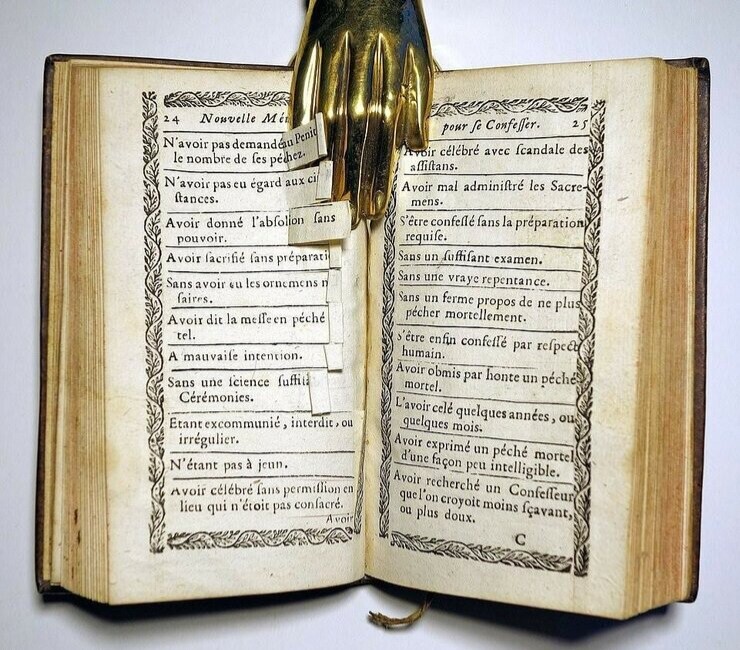 24 Nouvelle Mé
N'avoir pas demandé au Penit
le nombre de ses péchez.
N'avoir pas eu égard aux ci
stances.
Avoir donné l'absolution sans
pouvoir.
Avoir sacrifié sans préparati
Sans avoir eu les ornemens n
saires.
Avoir dit la messe en péché
tel.
A mauvaise intention.
Sans une science suffis
Cérémonies.
Etant excommunié, interdit, ou
irrégulier.
N'étant pas à jeun.
Avoir célébré sans permission en
lieu qui n'étoit pas consacré.
Avoir
pour se Confesser. 25
Avoir célébré avec scandale des
assistans.
Avoir mal administré les Sacre-
mens.
S'être confessé sans la préparation
requise.
Sans un suffisant examen.
Sans une vraye repentance.
Sans un ferme propos de ne plus
pécher mortellement.
S'être enfin confessé par respect
humain.
Avoir obmis par honte un péché
mortel.
L'avoir celé quelques années, ou
quelques mois.
Avoir exprimé un péché mortel
d'une façon peu intelligible.
Avoir recherché un Confesseur
que l'on croyoit moins sçavant,
ou plus doux.
C